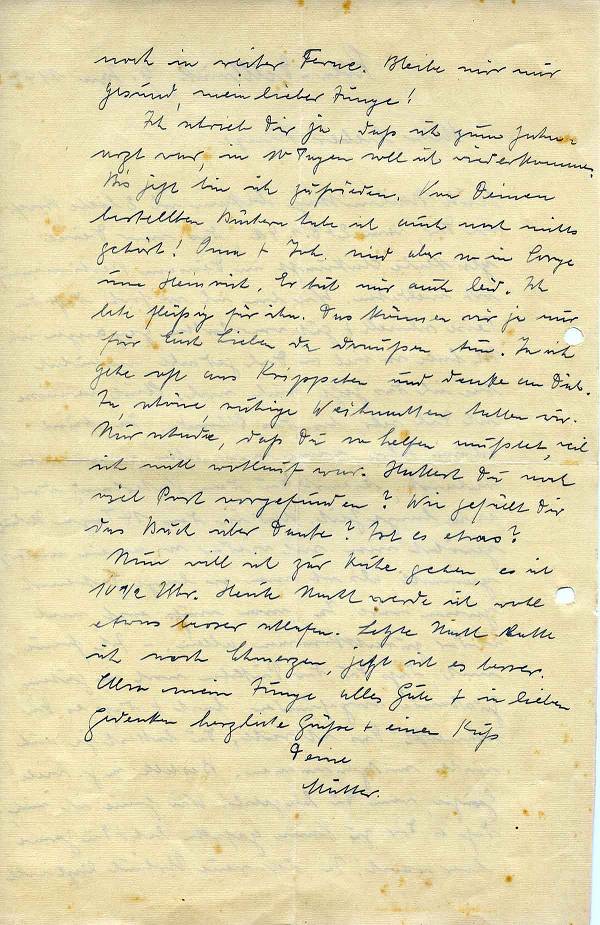 noch in weiter Ferne. Bleibe mir nur
gesund, mein lieber Junge!
Ich schrieb Dir ja, daß ich zum Zahn-
arzt war, in 10 Tagen soll ich wiederkommen.
Bis jetzt bin ich zufrieden. Von Deinen
bestellten Büchern habe ich auch noch nichts
gehört! Oma + Joh. sind aber so in Sorge
um Heinrich. Er tut mir auch leid. Ich
bete fleißig für ihn. Das können wir ja nur
für Euch Lieben da draußen tun. Ja ich
gehe oft ans Krippchen und denke an Dich.
Ja, schöne, ruhige Weihnachten hatten wir.
Nur schade, daß Du so helfen mußtest, weil
ich nicht wohlauf war. Hattest Du noch
viel Post vorgefunden? Wie gefällt Dir
das Buch über Dante? Ist es etwas?
Nun will ich zur Ruhe gehen, es ist
10 1/2 Uhr. Heute Nacht werde ich wohl
etwas besser schlafen. Letzte Nacht hatte
ich noch Schmerzen, jetzt ist es besser.
Also mein Junge alles Gute + in lieben
Gedenken herzliche Grüße + einen Kuß
Deine
Mutter.